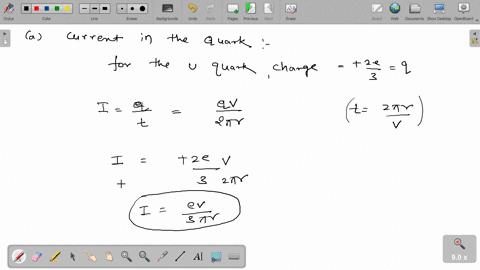 Color
Line
Eraser
Background
Undo
Redo
Pages
Previous
Next
Erase
Board
Web
Documents
Show Desktop
OpenBoard
(a) Current in the Quark :-
for the u quark, charge = +2e/3 = q
I = q/t = qv/2πr (t = 2πr/v)
I = +2e/3 v/2πr
+
I = ev/3πr
9.0 x